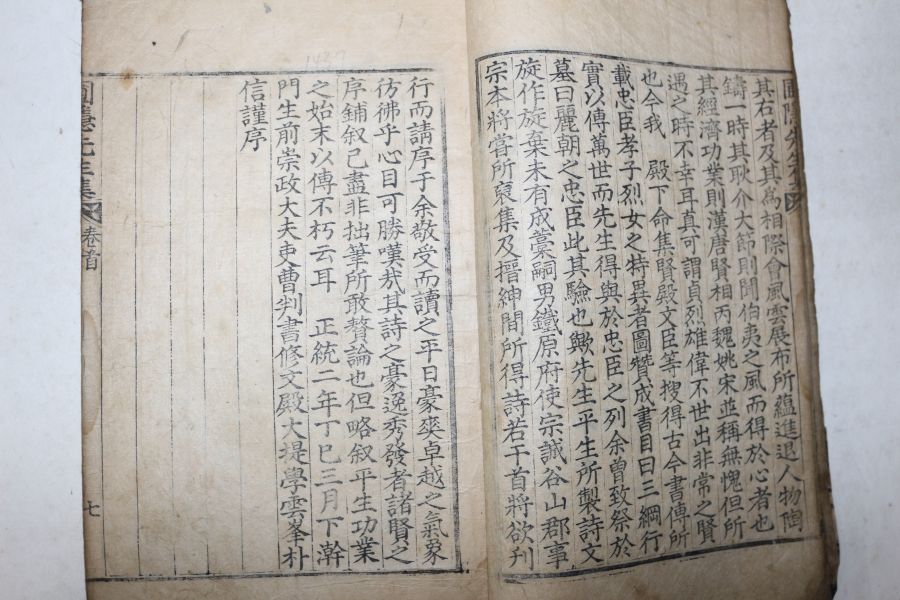 圃隱先生集
其右者及其爲相際會風雲展布所蘊進退人物陶
鑄一時其耿介大節則聞伯夷之風而得於心者也
其經濟功業則漢唐賢相丙魏姚宋並稱無愧但所
遇之時不幸耳真可謂貞烈雄偉不世出非常之賢
也今我 殿下命集賢殿文臣等搜得古今書傳所
載忠臣孝子烈女之特異者圖贊成書目曰三綱行
實以傳萬世而先生得與於忠臣之列余曾致祭於
墓曰麗朝之忠臣此其驗也歟先生平生所製詩文
旋作旋棄未有成藁嗣男鐵原府使宗誠谷山郡事
宗本將嘗所裒集及搢紳間所得詩若干首將欲刊
行而請序于余敬受而讀之平日豪爽卓越之氣象
彷彿乎心目可勝嘆哉其詩之豪逸秀發者諸賢之
序鋪叙已盡非拙筆所敢贅論也但略叙平生功業
之始末以傳不朽云耳 正統二年丁巳三月下澣
門生前崇政大夫吏曹判書修文殿大提學雲峯朴
信謹序
圃隱先生集 卷首 七